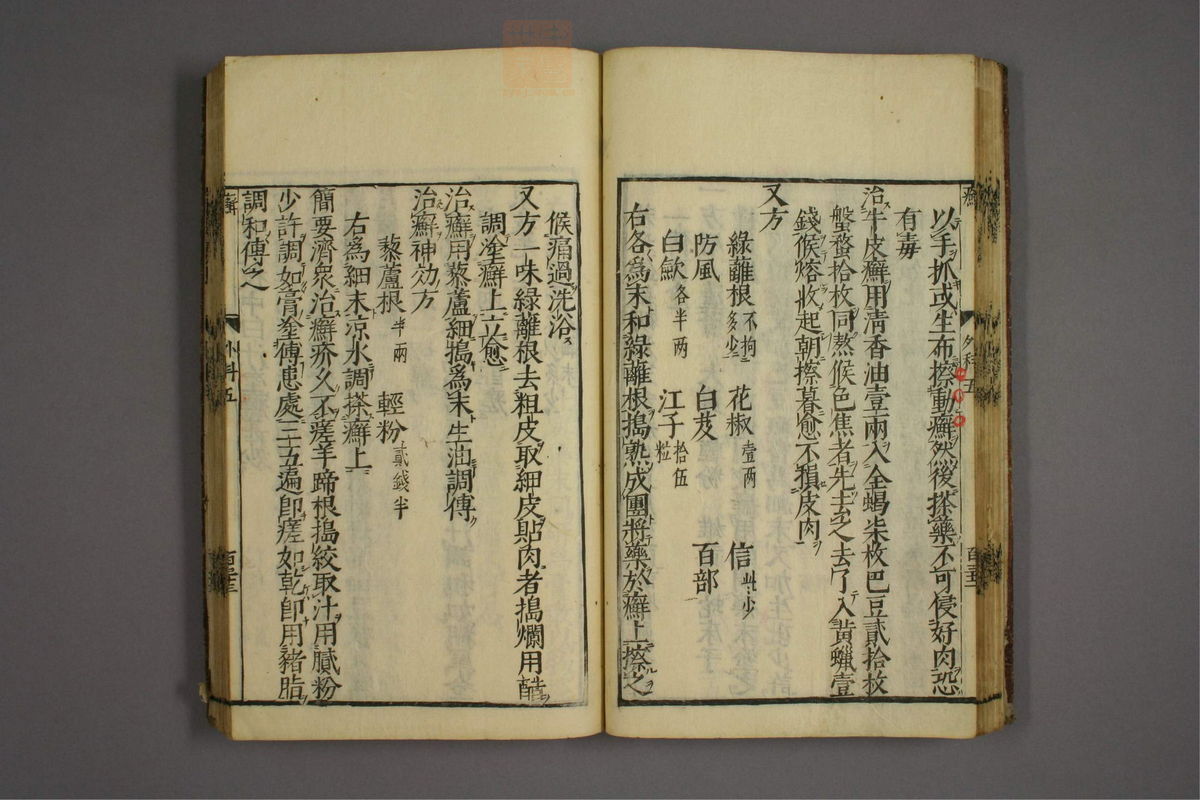 癬 外科五
以手抓或生布擦動癬然後搽藥不可侵好肉恐
有毒
治牛皮癬用清香油壹兩入全蝎柒枚巴豆貳拾枚
盤蝥拾枚同熬候色焦者先去之去了入黃蠟壹
錢候熔收起朝擦暮愈不損皮肉
又方
綠蘺根不拘多少 花椒壹兩 信些少
防風 白芨 百部
白歛各半兩 江子拾伍粒
右各為末和綠蘺根搗熟成團將藥於癬上擦之
候痛過洗浴
又方一味綠蘺根去粗皮取細皮貼肉者搗爛用醋
調塗癬上立愈
治癬用藜蘆細搗為末生油調傅
治癬神効方
藜蘆根半兩 輕粉貳錢半
右為細末凉水調搽癬上
簡要濟衆治癬疥久不瘥羊蹄根搗絞取汁用膩粉
少許調如膏塗傅患處三五遍即瘥如乾即用豬脂
調和傅之
癬 外科五